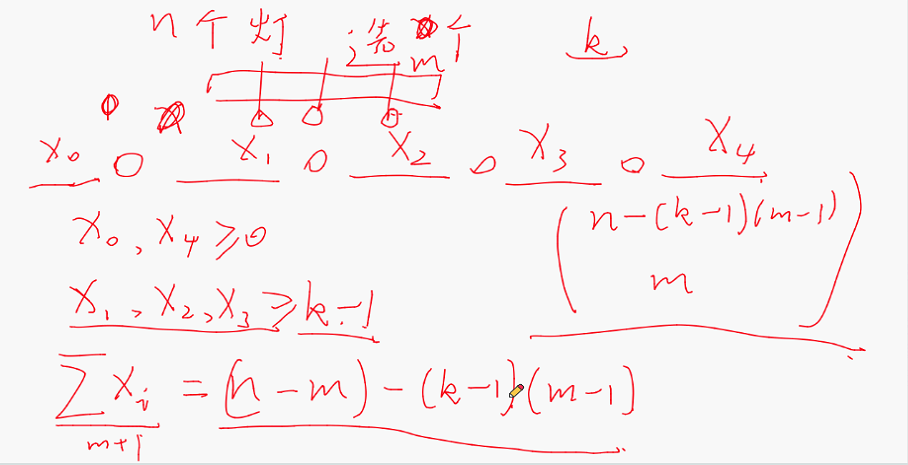 n个灯 选m个 k
x₀ O x₁ O x₂ O x₃ O x₄
x₀, x₄ ≥ 0
x₁, x₂, x₃ ≥ k-1
(n-(k-1)(m-1)
m)
∑xᵢ = (n-m)-(k-1)(m-1)
m+1